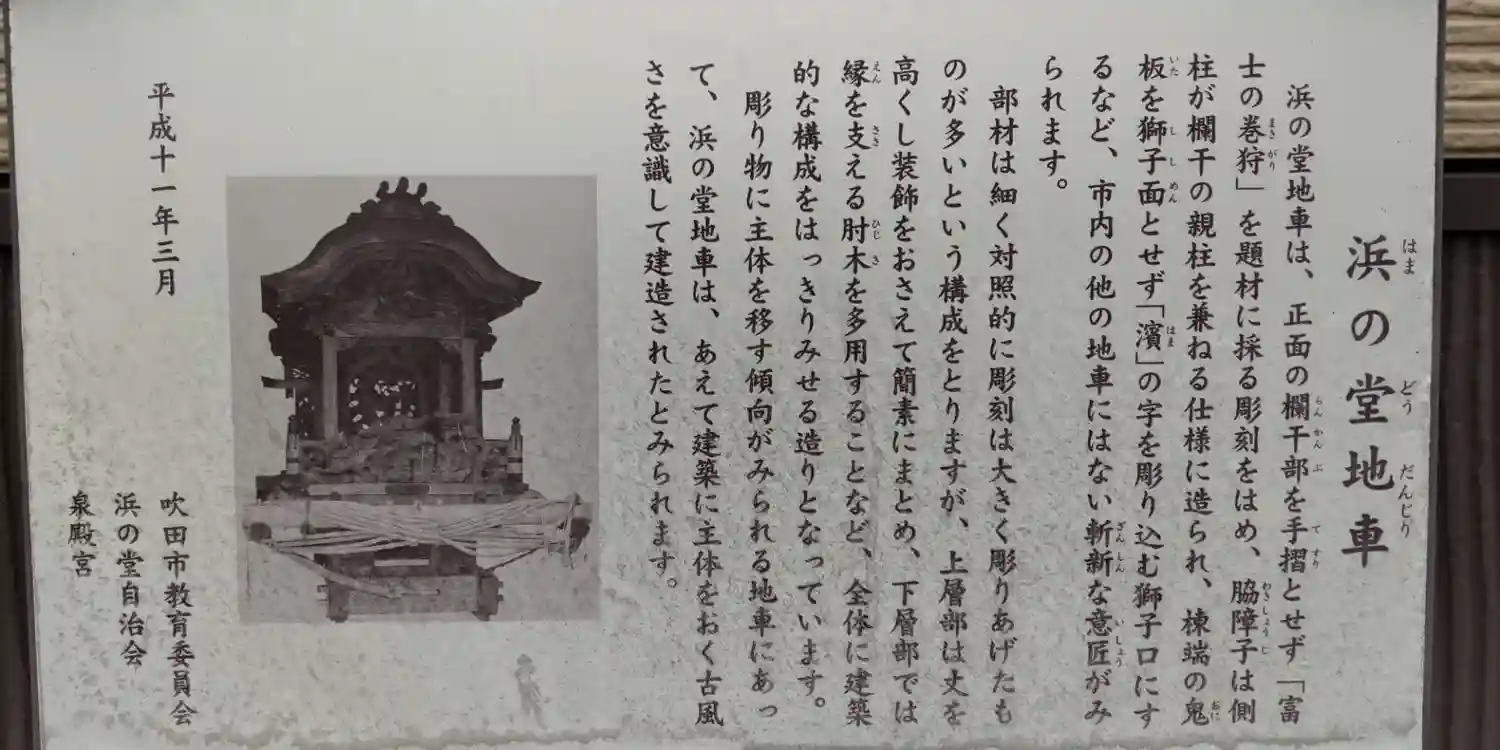 浜の堂地車
浜の堂地車は、正面の欄干部を手摺とせず「富
士の巻狩」を題材に採る彫刻をはめ、脇障子は側
柱が欄干の親柱を兼ねる仕様に造られ、棟端の鬼
板を獅子面とせず「濱」の字を彫り込む獅子口にす
るなど、市内の他の地車にはない斬新な意匠がみ
られます。
部材は細く対照的に彫刻は大きく彫りあげたも
のが多いという構成をとりますが、上層部は丈を
高くし装飾をおさえて簡素にまとめ、下層部では
縁を支える肘木を多用することなど、全体に建築
的な構成をはっきりみせる造りとなっています。
彫り物に主体を移す傾向がみられる地車にあっ
て、浜の堂地車は、あえて建築に主体をおく古風
さを意識して建造されたとみられます。
平成十一年三月
吹田市教育委員会
浜の堂自治会
泉殿宮